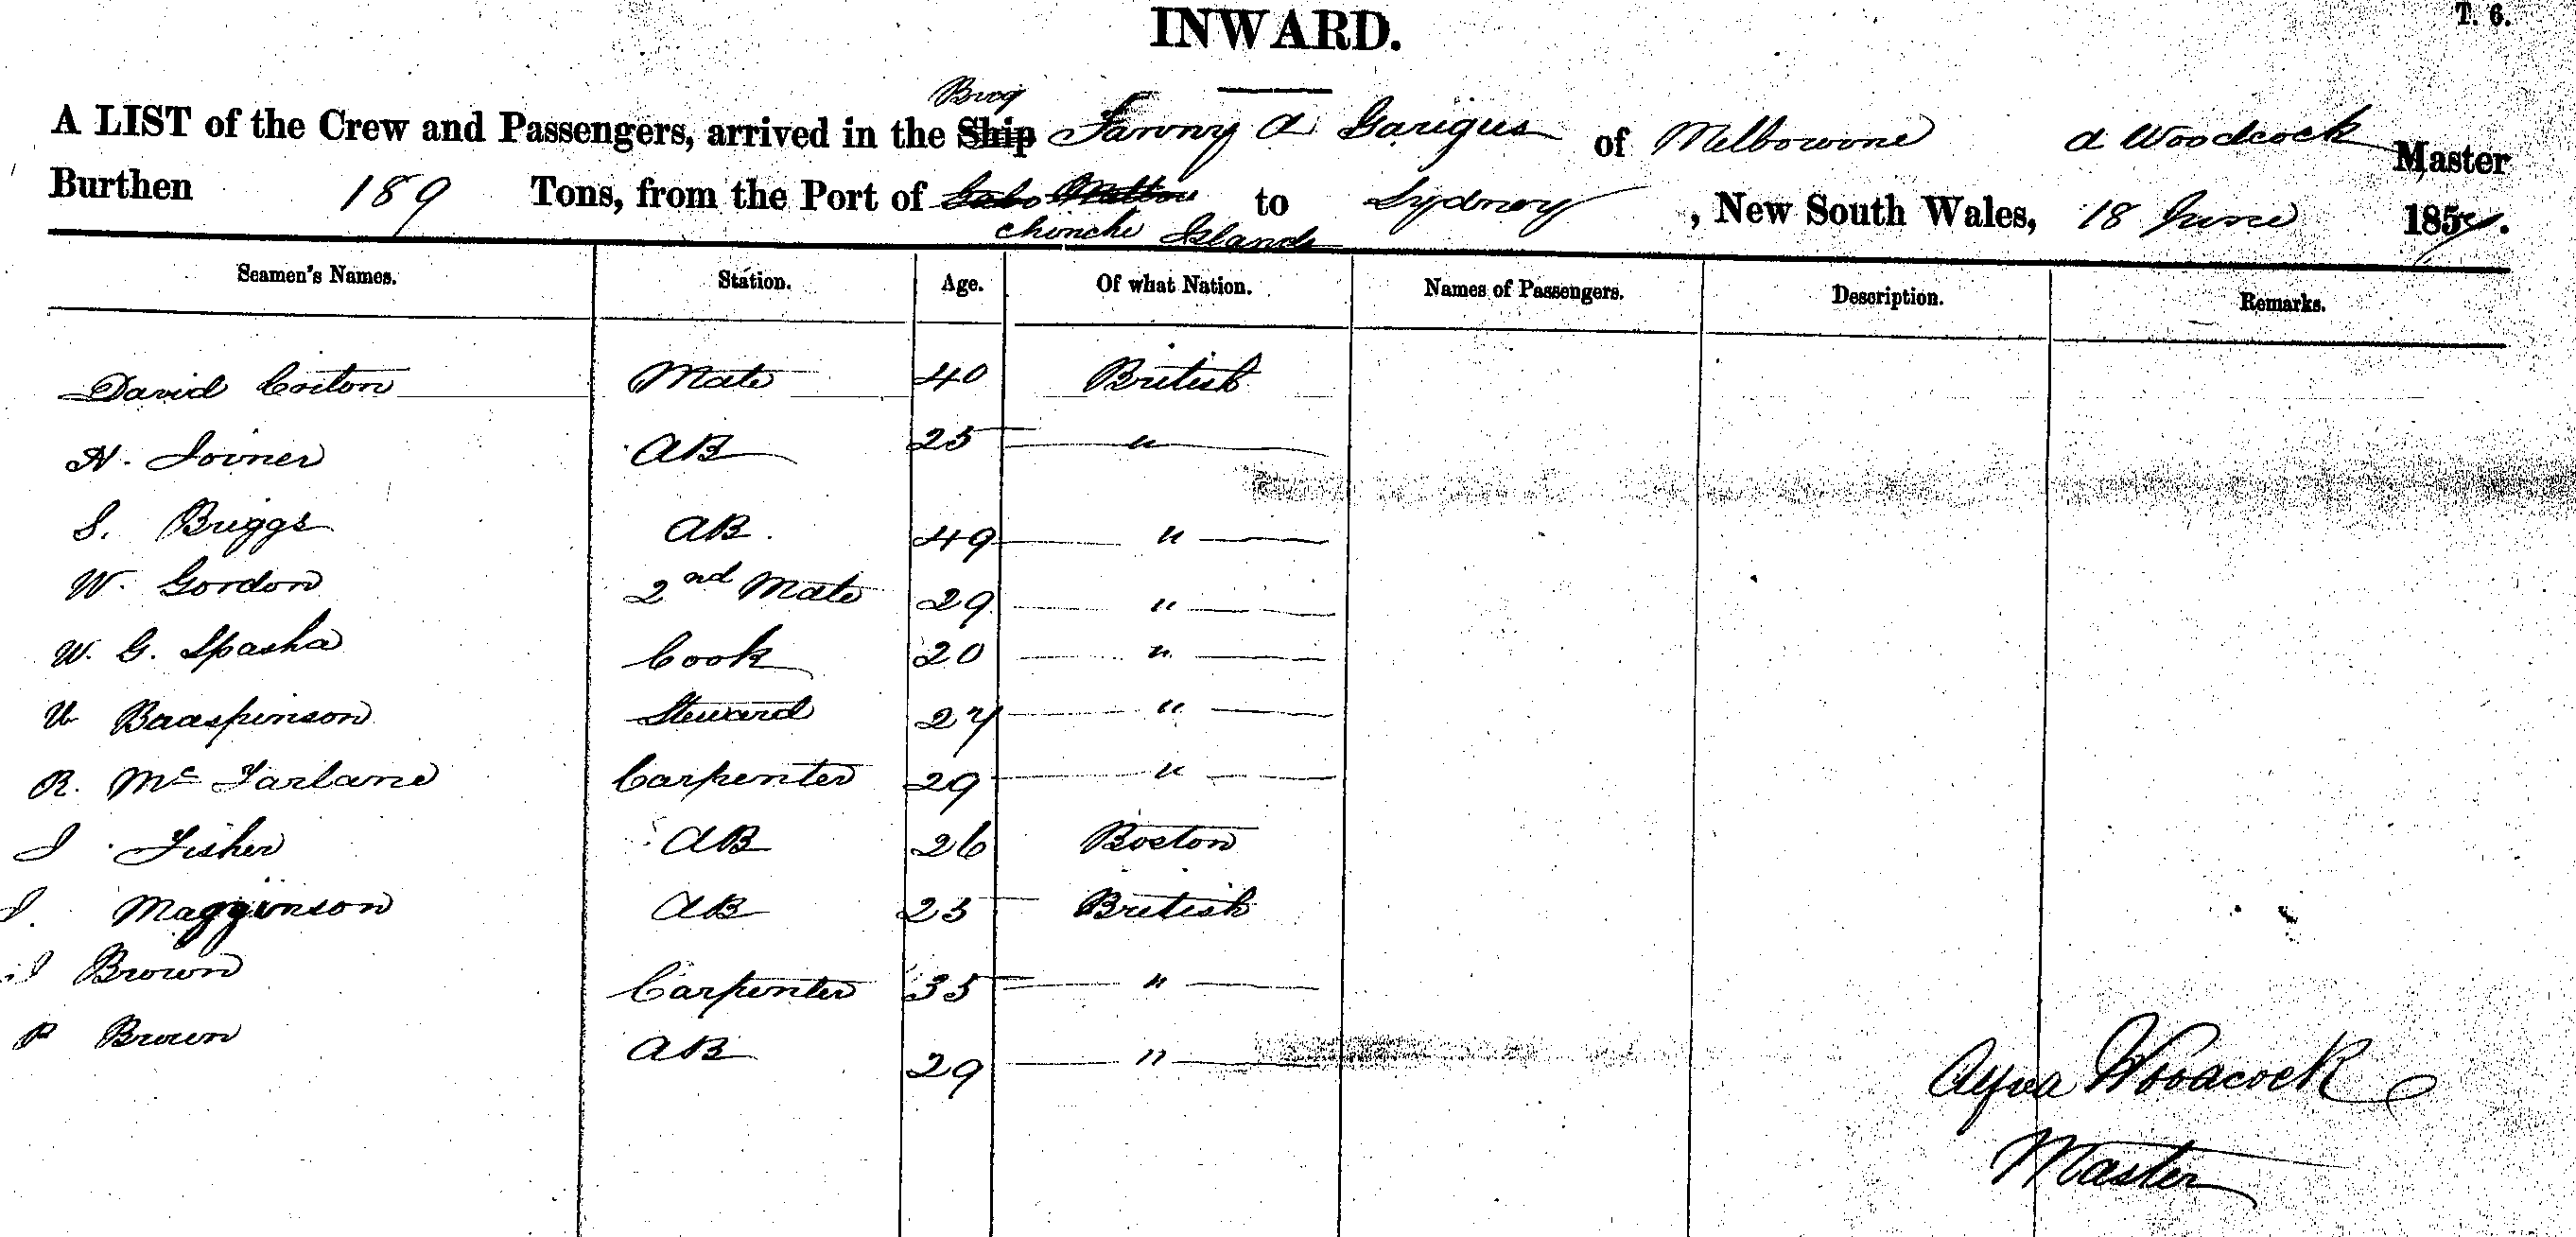 INWARD.
T. 6.
Brig
A LIST of the Crew and Passengers, arrived in the Ship Fanny A Garigus of Melbourne A Woodcock Master
Burthen 189 Tons, from the Port of to Sydney, New South Wales, 18 June 1857.
Chinchi Islands
Seamen's Names. Station. Age. Of what Nation. Names of Passengers. Description. Remarks.
David Coiton Mate 40 British
H. Joiner AB 25 "
S. Briggs AB. 49 "
W. Gordon 2nd Mate 29 "
W. G. Spasha Cook 20 "
Baaspinson Steward 27 "
R. Mc Farlane Carpenter 29 "
J Fisher AB 26 Boston
J. Magginson AB 25 British
J Brown Carpenter 35 "
P Brown AB 29 "
Woodcock
Master